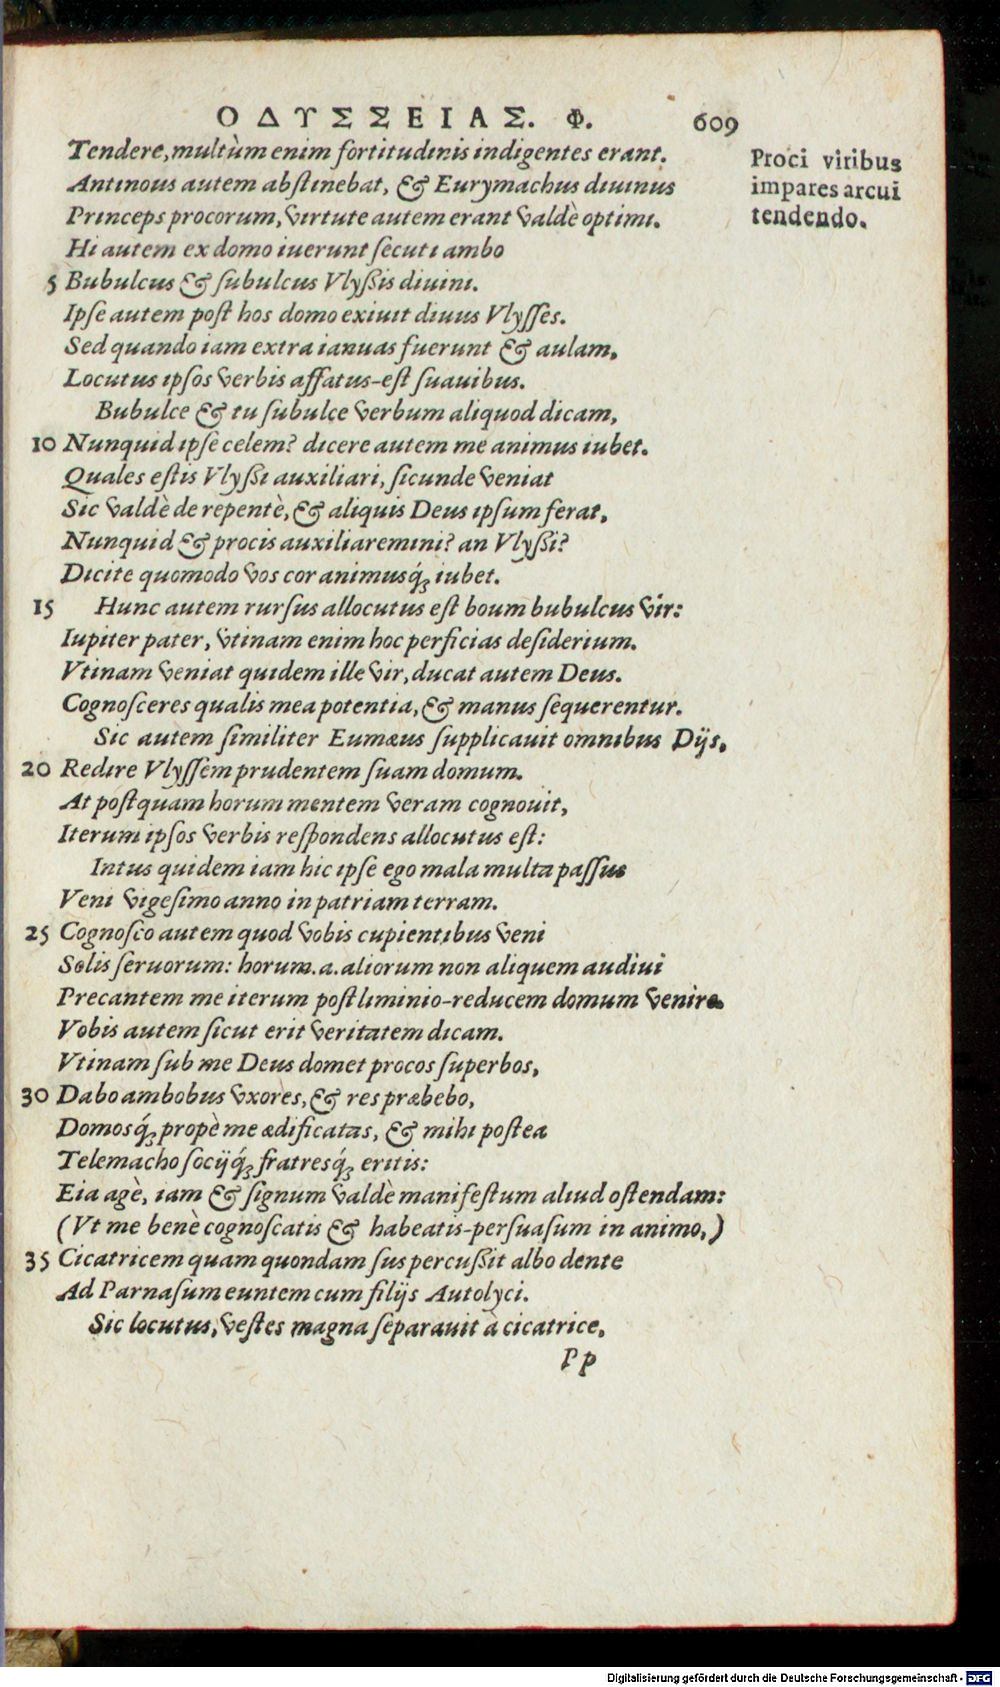 ΟΔΥΣΣΕΙΑΣ. Φ. 609
Tendere, multùm enim fortitudinis indigentes erant.
Proci viribus
impares arcui
tendendo.
Antinous autem abstinebat, & Eurymachus diuinus
Princeps procorum, virtute autem erant valdè optimi.
Hi autem ex domo iuerunt secuti ambo
5 Bubulcus & subulcus Vlyßis diuini.
Ipse autem post hos domo exiuit diuus Vlysses.
Sed quando iam extra ianuas fuerunt & aulam,
Locutus ipsos verbis affatus-est suauibus.
Bubulce & tu subulce verbum aliquod dicam,
10 Nunquid ipse celem? dicere autem me animus iubet.
Quales estis Vlyßi auxiliari, sicunde veniat
Sic valdè de repentè, & aliquis Deus ipsum ferat,
Nunquid & procis auxiliaremini? an Vlyßi?
Dicite quomodo vos cor animusq́; iubet.
15 Hunc autem rursus allocutus est boum bubulcus vir:
Iupiter pater, vtinam enim hoc perficias desiderium.
Vtinam veniat quidem ille vir, ducat autem Deus.
Cognosceres qualis mea potentia, & manus sequerentur.
Sic autem similiter Eumæus supplicauit omnibus Dijs,
20 Redire Vlyssem prudentem suam domum.
At postquam horum mentem veram cognouit,
Iterum ipsos verbis respondens allocutus est:
Intus quidem iam hic ipse ego mala multa passus
Veni vigesimo anno in patriam terram.
25 Cognosco autem quod vobis cupientibus veni
Solis seruorum: horum .a. aliorum non aliquem audiui
Precantem me iterum postliminio-reducem domum venire.
Vobis autem sicut erit veritatem dicam.
Vtinam sub me Deus domet procos superbos,
30 Dabo ambobus vxores, & res præbebo,
Domosq́; propè me ædificatas, & mihi postea
Telemacho socijq́; fratresq́; eritis:
Eia agè, iam & signum valdè manifestum aliud ostendam:
(Vt me benè cognoscatis & habeatis-persuasum in animo,)
35 Cicatricem quam quondam sus percußit albo dente
Ad Parnasum euntem cum filijs Autolyci.
Sic locutus, vestes magna separauit à cicatrice.
Pp
Digitalisierung gefördert durch die Deutsche Forschungsgemeinschaft - DFG